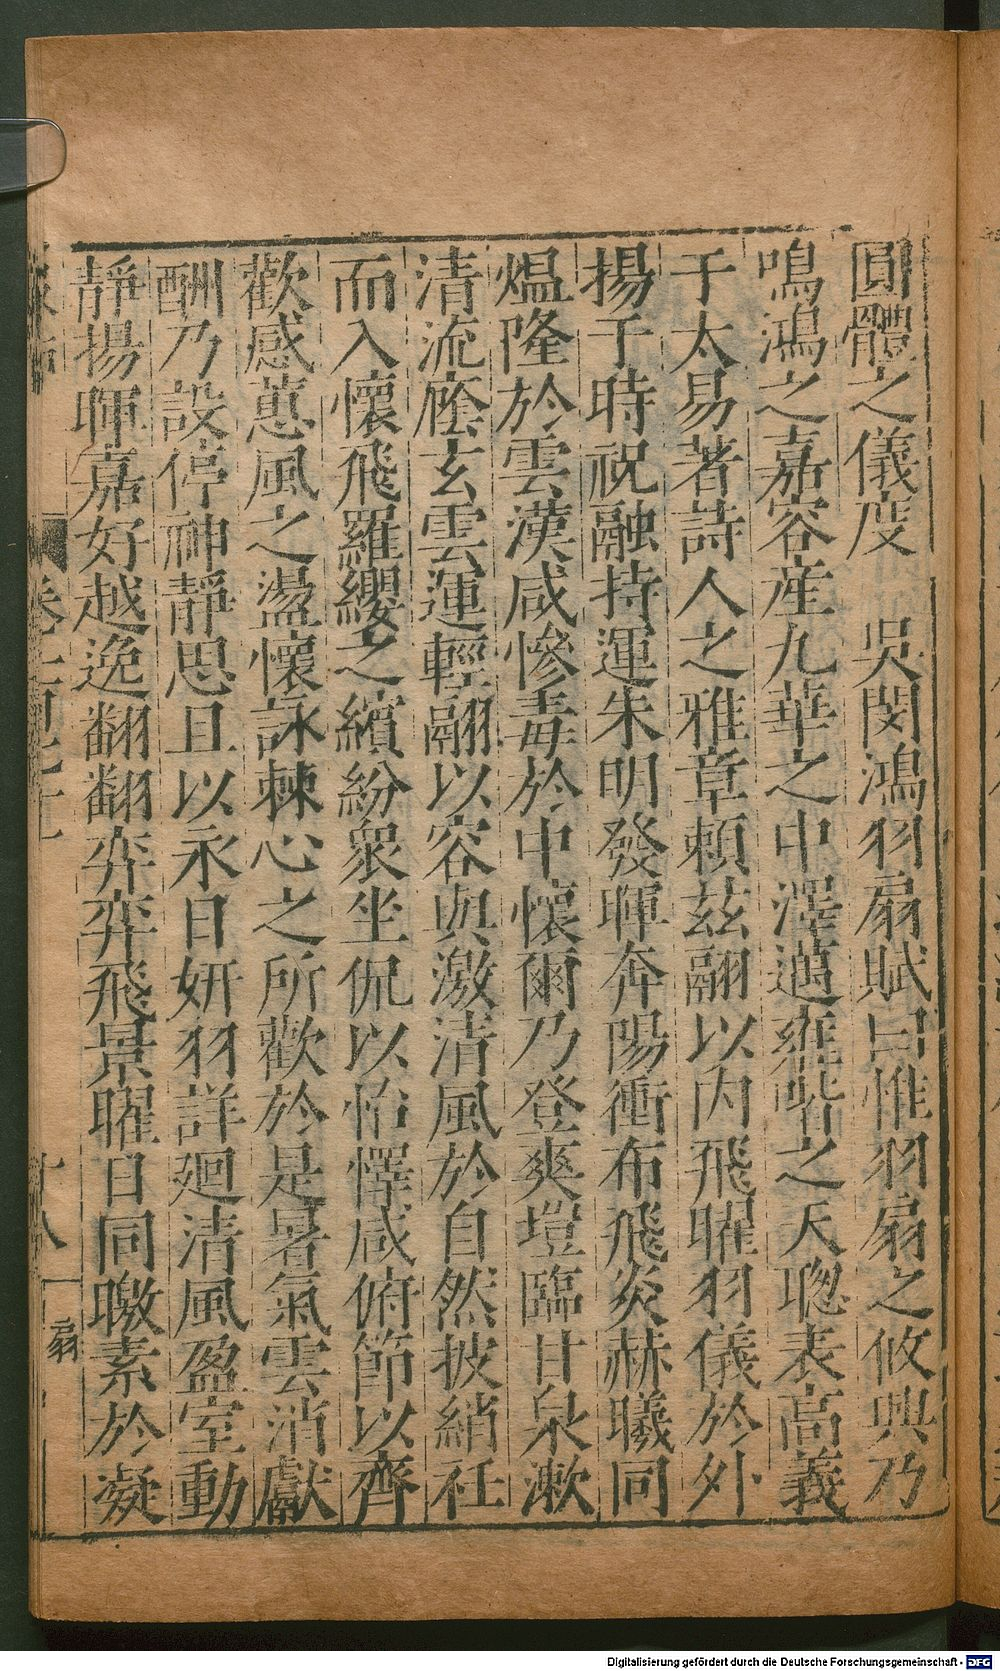 圓體之儀度　吳閔鴻羽扇賦曰惟羽扇之攸興乃
鳴鴻之嘉容産九華之中澤邁雍喈之天聰表高義
于太易著詩人之雅章賴茲翮以内飛曜羽儀於外
揚于時祝融持運朱明發暉奔陽衝布飛炎赫曦同
熅隆於雲漢咸慘毒於中懷爾乃登爽塏臨甘泉漱
清流廕玄雲運輕翮以容與激清風於自然披綃衽
而入懷飛羅纓之繽紛衆坐侃以怡懌咸俯節以齊
歡感蕙風之盪懷詠棘心之所歡於是暑氣雲消獻
酬乃設停神靜思且以永日妍羽詳廻清風盈室動
靜揚暉嘉好越逸翻翻弈弈飛景曜日同皦素於凝
扇
Digitalisierung gefördert durch die Deutsche Forschungsgemeinschaft - DFG